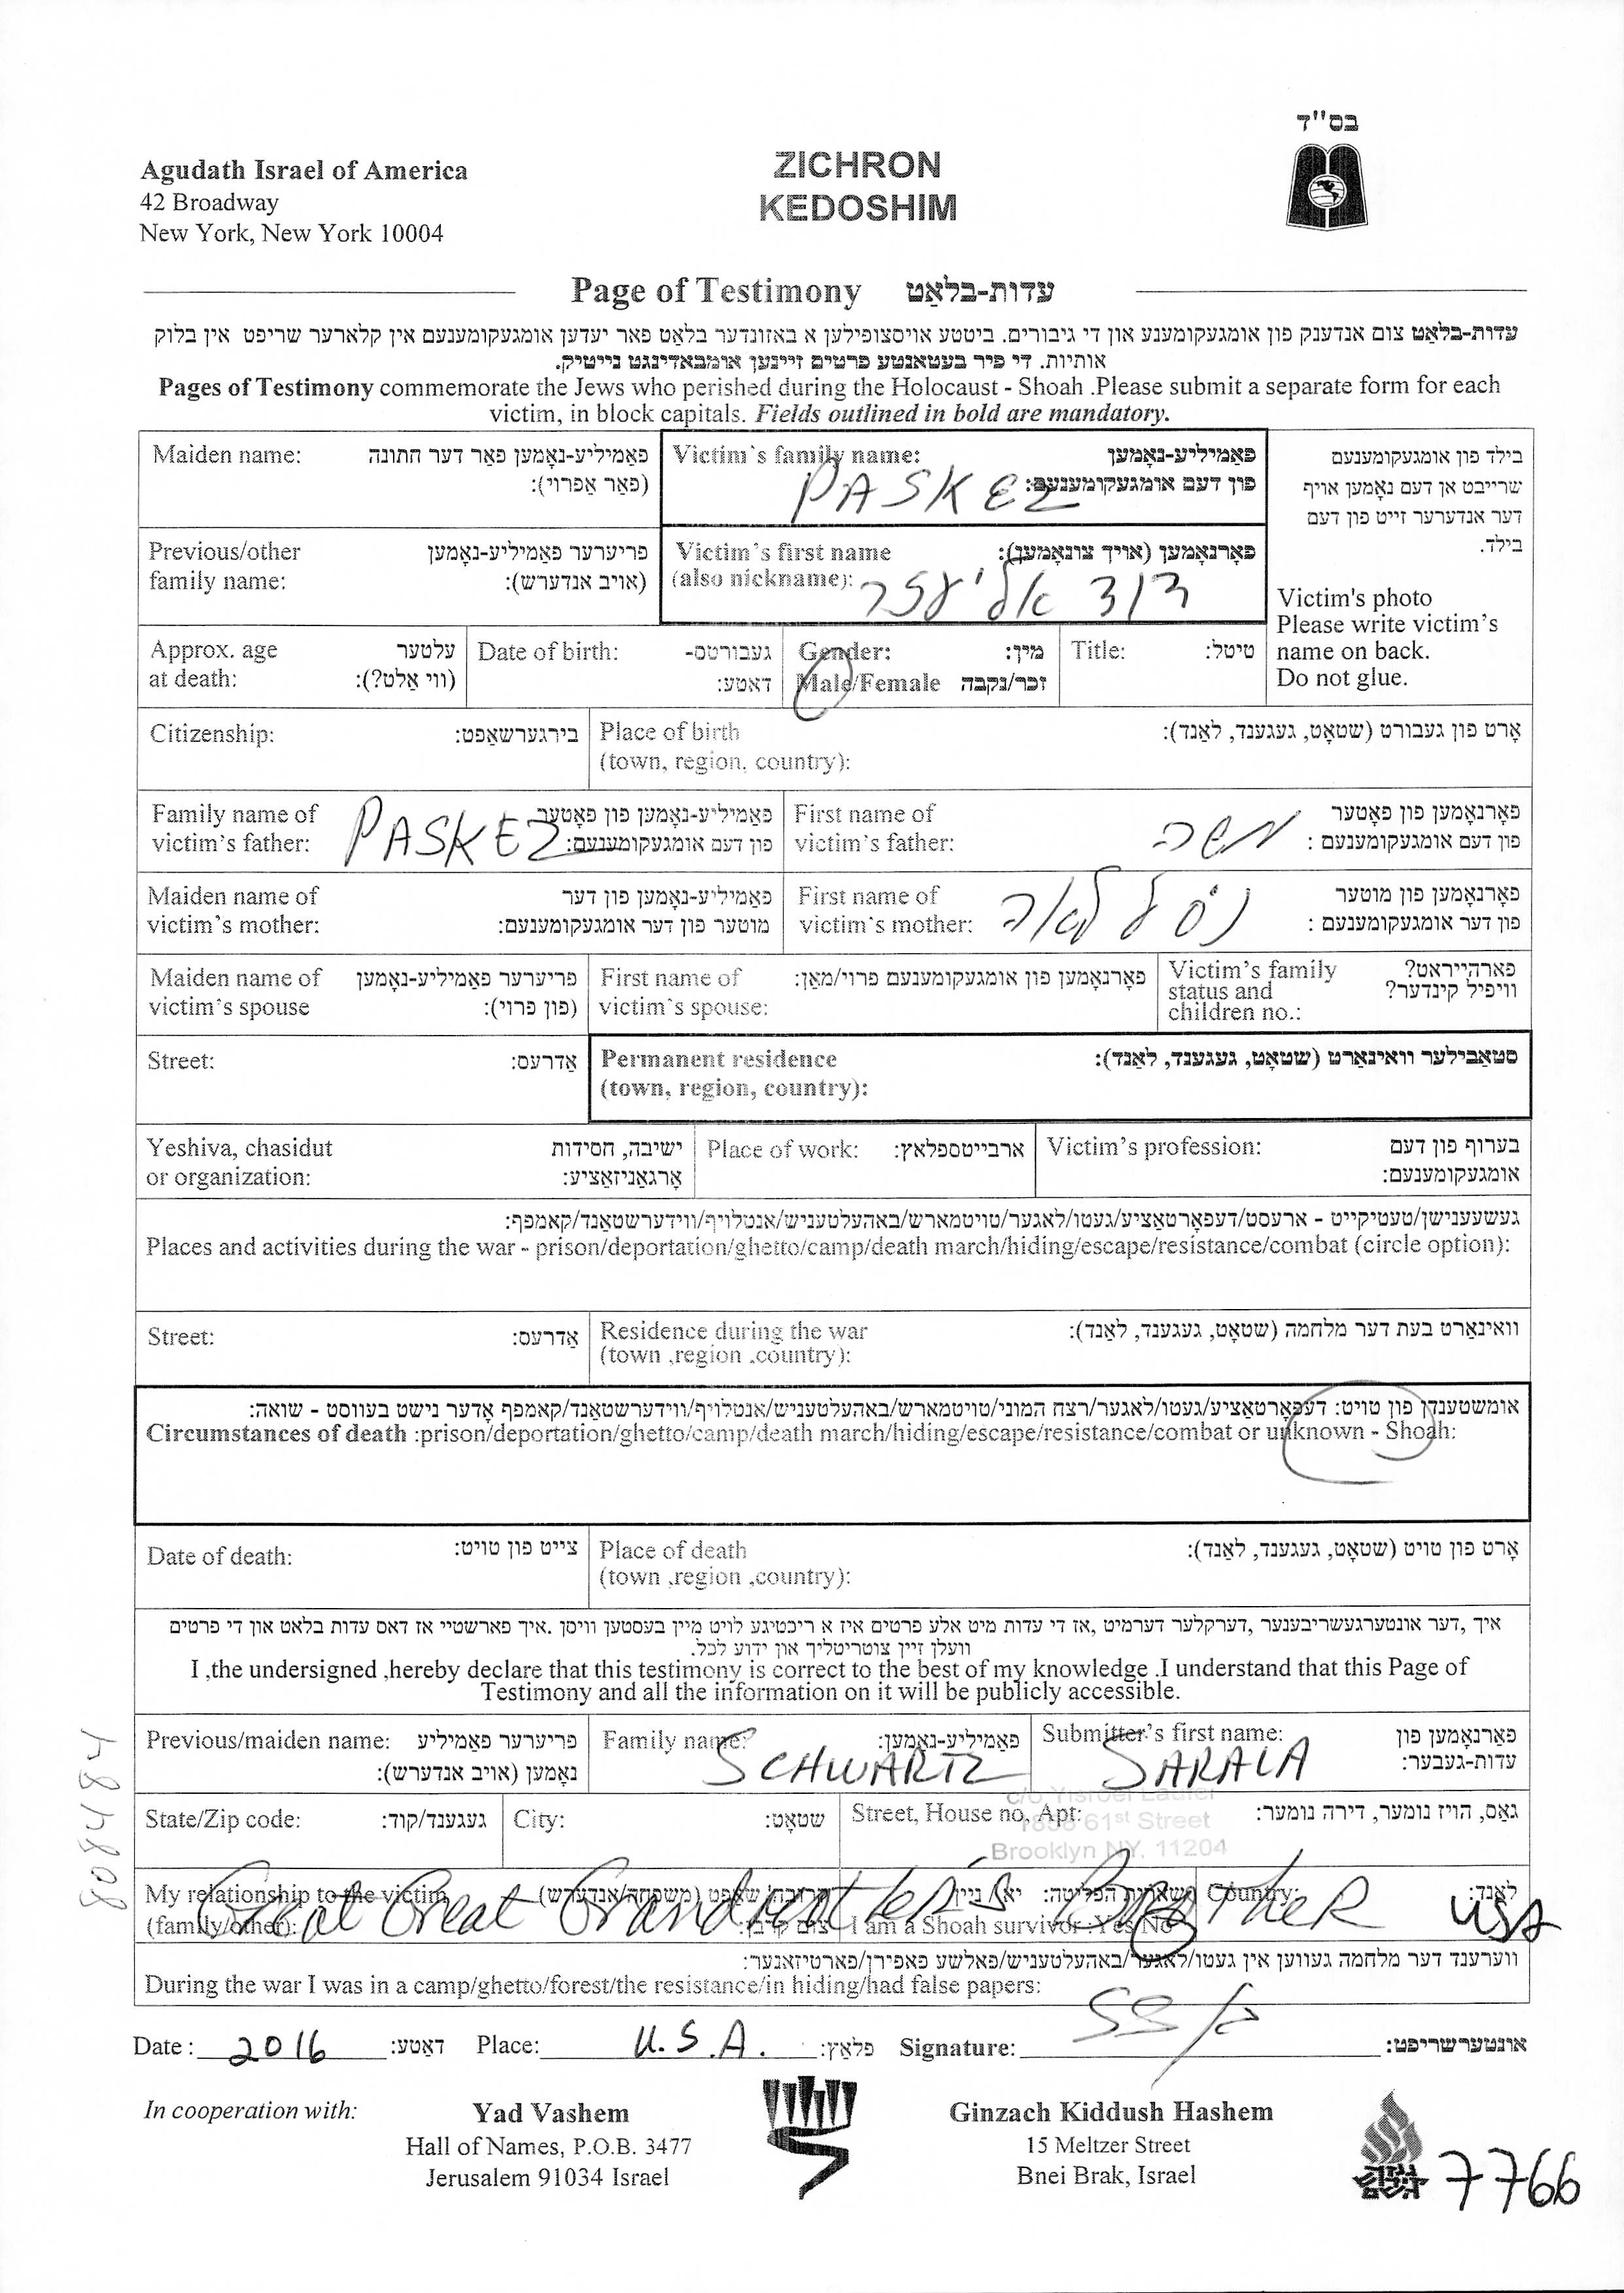 בס"ד
Agudath Israel of America
42 Broadway
New York, New York 10004
ZICHRON
KEDOSHIM
Page of Testimony עדות-בלאַט
עדות-בלאַט צום אנדענק פון אומגעקומענע און די גיבורים. ביטטע אויסצופילען א באזונדער בלאַט פאר יעדען אומגעקומענעם אין קלארער שריפט אין בלוק
אותיות. די פיר בעטאנטע פרטים זיינען אומבאדינגט נייטיק.
Pages of Testimony commemorate the Jews who perished during the Holocaust - Shoah .Please submit a separate form for each
victim, in block capitals. Fields outlined in bold are mandatory.
Maiden name: פאַמיליע-נאָמען פאר דער חתונה
(פאַר אַפרוי):
Victim's family name: פאַמיליע-נאָמען
פון דעם אומגעקומענעם:
PASKEZ
בילד פון אומגעקומענעם
שרייבט אן דעם נאָמען אויף
דער אנדערער זייט פון דעם
בילד.
Victim's photo
Please write victim's
name on back.
Do not glue.
Previous/other פריערער פאַמיליע-נאָמען
family name: (אויב אנדערש):
Victim's first name פאָרנאָמען (אויך צונאָמען):
(also nickname):
דוד אליעזר
Approx. age עלטער
at death: (ווי אַלט?):
Date of birth: געבורטס-
דאטע:
Gender: מין:
Male/Female זכר/נקבה
Title: טיטל:
Citizenship: בירגערשאַפט:
Place of birth אָרט פון געבורט (שטאָט, געגענד, לאַנד):
(town, region, country):
Family name of פאַמיליע-נאָמען פון פאָטער
victim's father: פון דעם אומגעקומענעם:
PASKEZ
First name of פאָרנאָמען פון פאָטער
victim's father: פון דעם אומגעקומענעם :
משה
Maiden name of פאַמיליע-נאָמען פון דער
victim's mother: מוטער פון דער אומגעקומענעם:
First name of פאָרנאָמען פון מוטער
victim's mother: פון דער אומגעקומענעם :
לאה
Maiden name of פריערער פאַמיליע-נאָמען
victim's spouse (פון פרוי):
First name of פאָרנאָמען פון אומגעקומענעם פרוי/מאַן:
victim's spouse:
Victim's family פארהייראט?
status and וויפיל קינדער?
children no.:
Street: אַדרעס:
Permanent residence סטאַבילער וואוינארט (שטאָט, געגענד, לאַנד):
(town, region, country):
Yeshiva, chasidut ישיבה, חסידות
or organization: אָרגאַניזאַציע:
Place of work: ארבייטספלאץ:
Victim's profession: בערוף פון דעם
אומגעקומענעם:
געשעענישן/טעטיקייט - ארעסט/דעפאָרטאַציע/געטו/לאגער/טויטמארש/באהעלטעניש/אנטלויף/ווידערשטאַנד/קאמפף:
Places and activities during the war - prison/deportation/ghetto/camp/death march/hiding/escape/resistance/combat (circle option):
Street: אַדרעס:
Residence during the war וואוינארט בעת דער מלחמה (שטאָט, געגענד, לאַנד):
(town ,region ,country):
אומשטענדן פון טויט: דעפאָרטאַציע/געטו/לאגער/רצח המוני/טויטמארש/באהעלטעניש/אנטלויף/ווידערשטאַנד/קאמפף אָדער נישט בעוואוסט - שואה:
Circumstances of death :prison/deportation/ghetto/camp/death march/hiding/escape/resistance/combat or unknown - Shoah:
Date of death: צייט פון טויט:
Place of death אָרט פון טויט (שטאָט, געגענד, לאַנד):
(town ,region ,country):
איך ,דער אונטערגעשריבענער ,דערקלער דערמיט ,אז די עדות מיט אלע פרטים איז א ריכטיגע לויט מיין בעסטען וויסן .איך פארשטיי אז דאס עדות בלאט און די פרטים
וועלן זיין צוטריטליך און ידוע לכל.
I ,the undersigned ,hereby declare that this testimony is correct to the best of my knowledge .I understand that this Page of
Testimony and all the information on it will be publicly accessible.
Previous/maiden name: פריערער פאַמיליע
נאָמען (אויב אנדערש):
Family name: פאַמיליע-נאָמען:
SCHWARTZ
Submitter's first name: פאָרנאָמען פון
עדות-געבער:
SARALA
State/Zip code: געגענד/קוד:
City: שטאָט:
Street, House no, Apt: גאַס, הויז נומער, דירה נומער:
c/o Yisroel Laufer
61st Street
Brooklyn NY. 11204
My relationship to the victim (משפחה/אנדערש)
(family/other):
Great Great Grandmother's Brother
I am a Shoah survivor :Yes/No
Country: לאַנד:
USA
ווערענד דער מלחמה געווען אין געטו/לאגער/באהעלטעניש/פאלשע פאפירן/פארטיזאנער:
During the war I was in a camp/ghetto/forest/the resistance/in hiding/had false papers:
Date : 2016 דאטע: Place: U.S.A. פלאַץ: Signature: אונטערשריפט:
In cooperation with:
Yad Vashem
Hall of Names, P.O.B. 3477
Jerusalem 91034 Israel
Ginzach Kiddush Hashem
15 Meltzer Street
Bnei Brak, Israel
גנזך
קידוש
השם
7766
808484